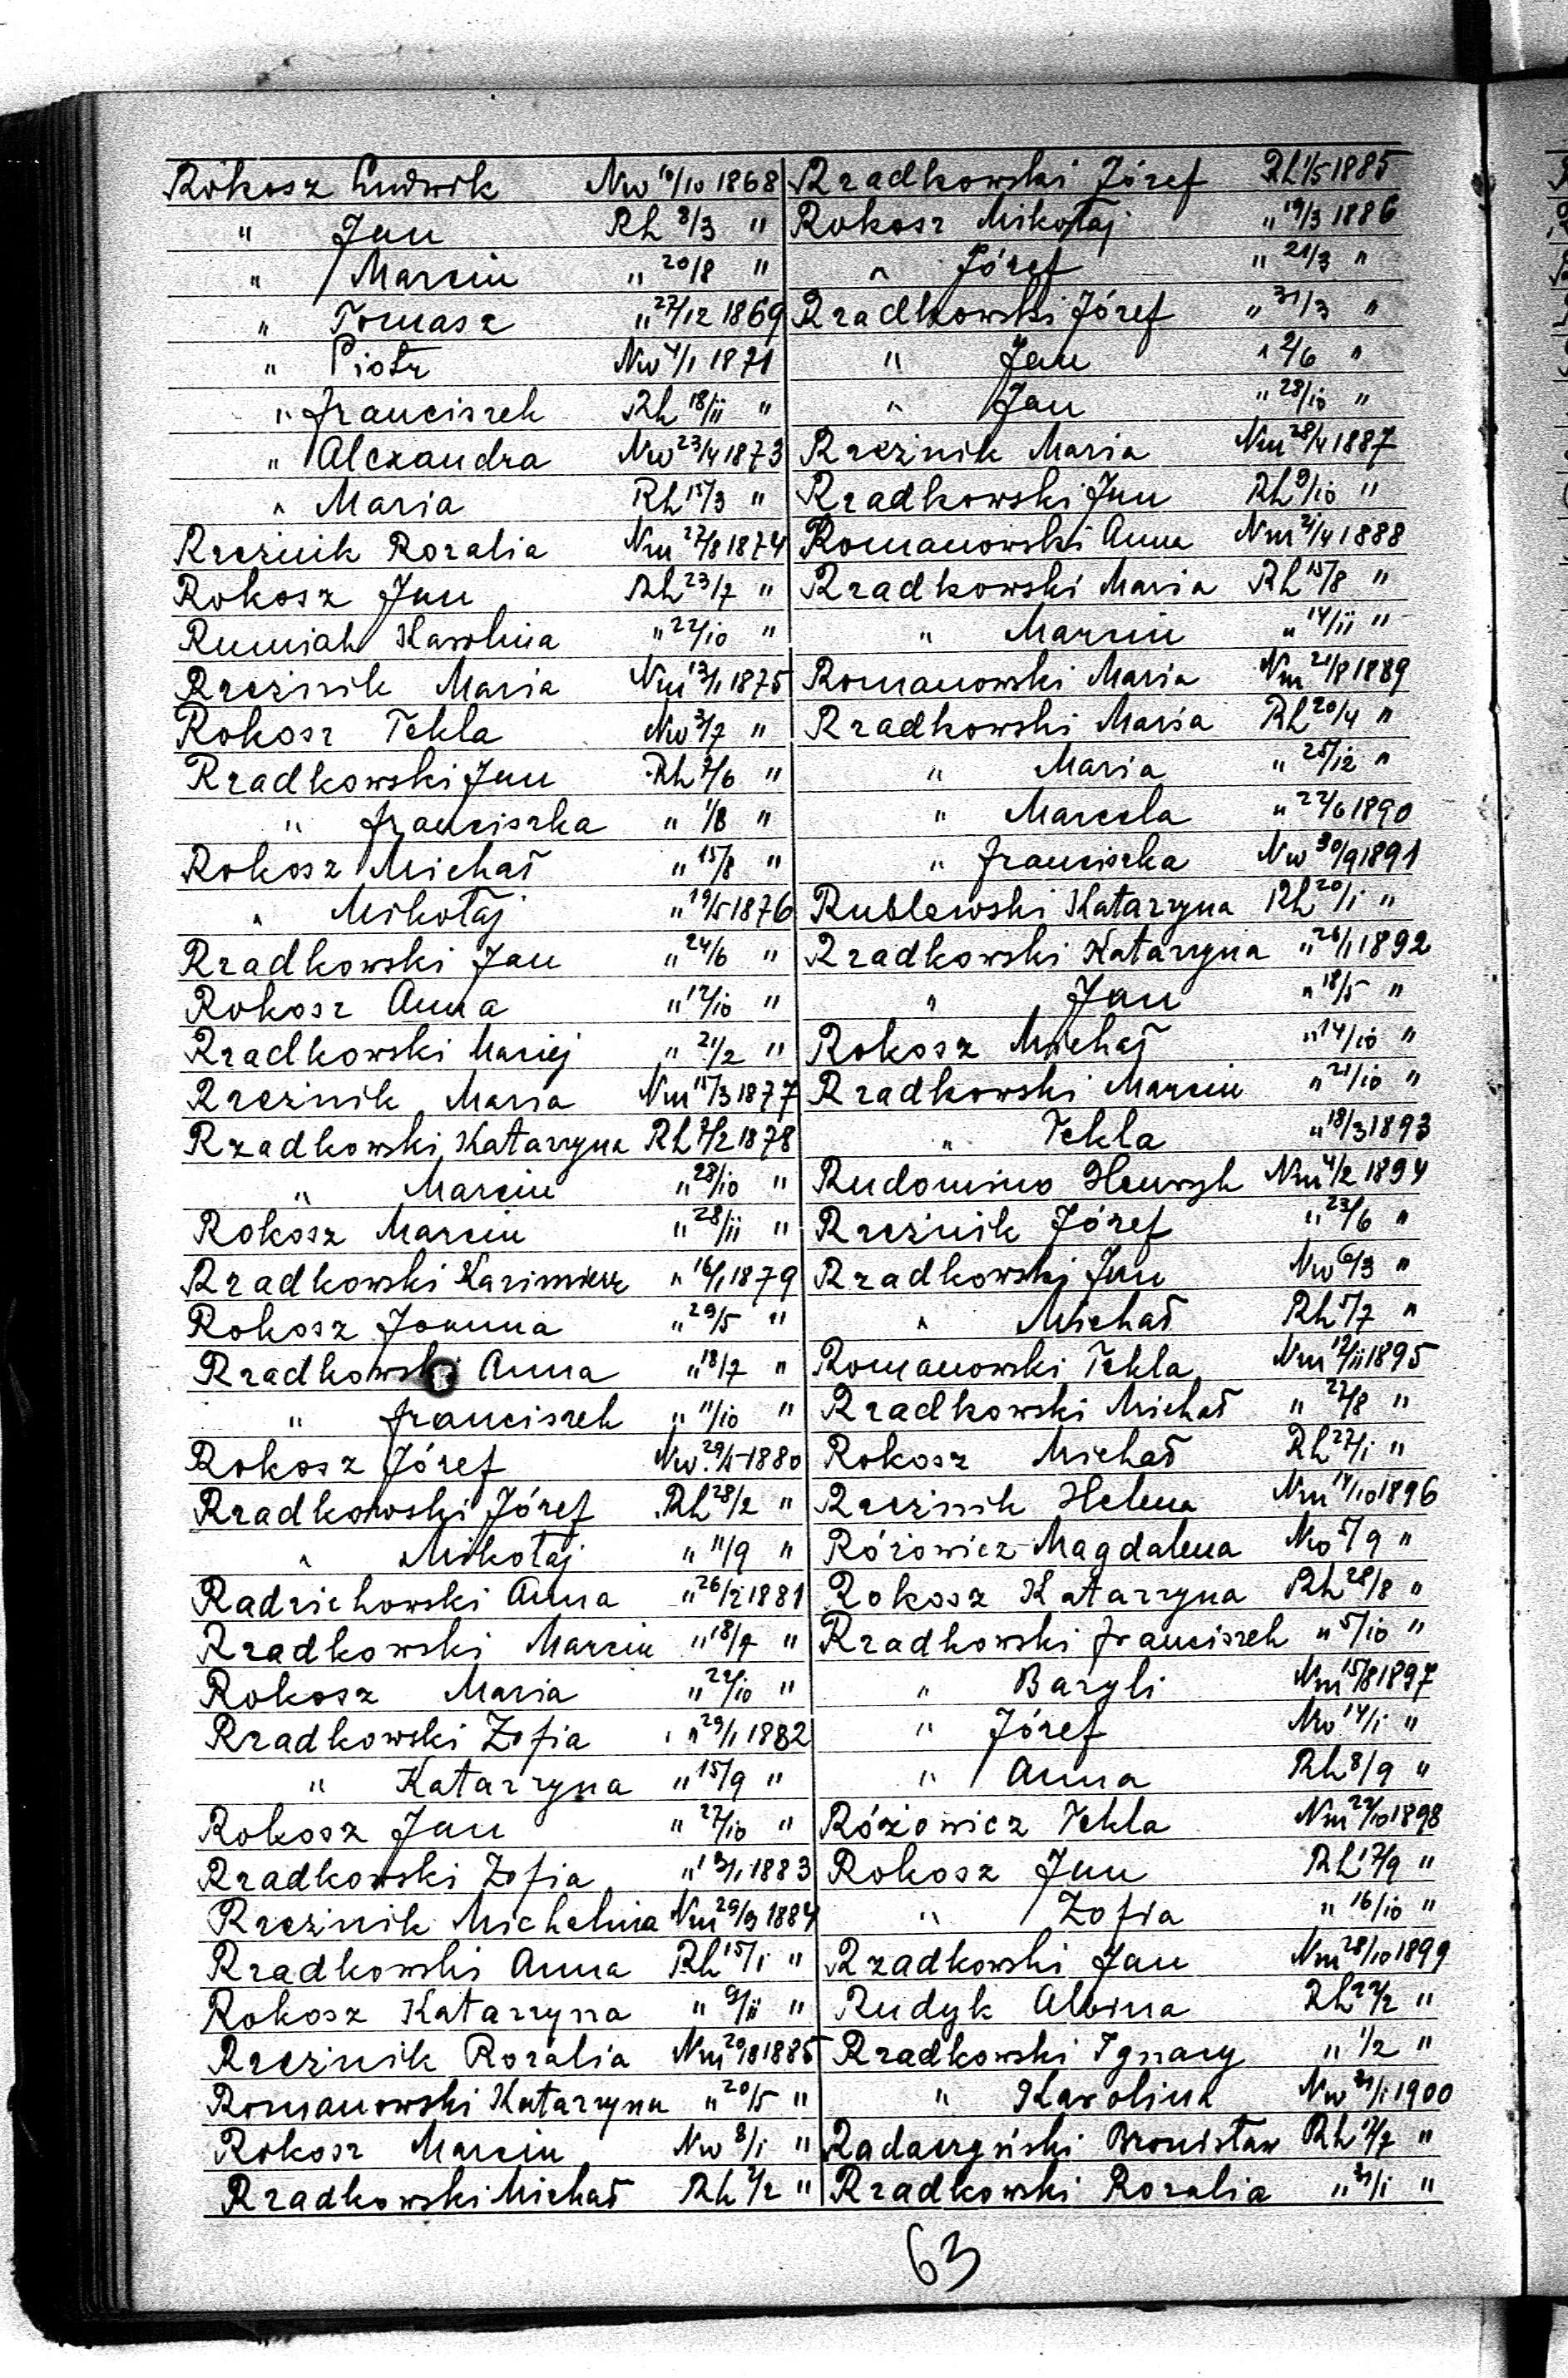 Rokosz Ludwik Nw 10/10 1868
" Jan Rh 8/3 "
" Marcin " 20/8 "
" Tomasz " 27/12 1869
" Piotr Nw 4/1 1871
" Franciszek Rh 18/ii "
" Alexandra Nw 23/4 1873
" Maria Rh 15/3 "
Rzeźnik Rozalia Nm 27/8 1874
Rokosz Jan Rh 23/7 "
Rumiak Karolina " 22/10 "
Rzeźnik Maria Nm 13/1 1875
Rokosz Tekla Nw 3/7 "
Rzadkowski Jan Rh 2/6 "
" Franciszka " 1/8 "
Rokosz Michał " 15/8 "
" Mikołaj " 19/5 1876
Rzadkowski Jan " 24/6 "
Rokosz Anna " 12/10 "
Rzadkowski Maciej " 21/2 "
Rzeźnik Maria Nm 15/3 1877
Rzadkowski Katarzyna Rh 2/2 1878
" Marcin " 28/10 "
Rokosz Marcin " 28/ii "
Rzadkowski Kazimierz " 16/1 1879
Rokosz Joanna " 29/5 "
Rzadkowski Anna " 18/7 "
" Franciszek " 11/10 "
Rokosz Józef Nw 29/5 1880
Rzadkowski Józef Rh 28/2 "
" Mikołaj " 11/9 "
Radzichowski Anna " 26/2 1881
Rzadkowski Marcin " 18/9 "
Rokosz Maria " 22/10 "
Rzadkowski Zofia " 29/1 1882
" Katarzyna " 15/9 "
Rokosz Jan " 27/10 "
Rzadkowski Zofia " 13/1 1883
Rzeźnik Michalina Nm 29/9 1884
Rzadkowski Anna Rh 15/i "
Rokosz Katarzyna " 9/ii "
Rzeźnik Rozalia Nm 20/8 1885
Romanowski Katarzyna " 20/5 "
Rokosz Marcin Nw 8/i "
Rzadkowski Michał Rh 2/2 "
Rzadkowski Józef Rh 1/5 1885
Rokosz Mikołaj " 19/3 1886
" Józef " 21/3 "
Rzadkowski Józef " 31/3 "
" Jan " 2/6 "
" Jan " 28/10 "
Rzeźnik Maria Nm 28/4 1887
Rzadkowski Jan Rh 9/10 "
Romanowski Anna Nm 21/4 1888
Rzadkowski Maria Rh 15/8 "
" Marcin " 14/ii "
Romanowski Maria Nm 21/8 1889
Rzadkowski Maria Rh 20/4 "
" Maria " 25/12 "
" Marcela " 22/6 1890
" Franciszka Nw 30/9 1891
Rublewski Katarzyna Rh 20/i "
Rzadkowski Katarzyna " 26/1 1892
" Jan " 18/5 "
Rokosz Michał " 14/10 "
Rzadkowski Marcin " 21/10 "
" Tekla " 18/3 1893
Rudomino Henryk Nm 4/2 1894
Rzeźnik Józef " 23/6 "
Rzadkowski Jan Nw 6/3 "
" Michał Rh 5/7 "
Romanowski Tekla Nm 12/ii 1895
Rzadkowski Michał " 27/8 "
Rokosz Michał Rh 27/i "
Rzeźnik Helena Nm 14/10 1896
Różowicz Magdalena Nw 5/9 "
Rokosz Katarzyna Rh 28/8 "
Rzadkowski Franciszek " 5/10 "
" Bazyli Nm 15/8 1897
" Józef Nw 14/i "
" Anna Rh 8/9 "
Różowicz Tekla Nm 22/10 1898
Rokosz Jan Rh 17/9 "
" Zofia " 16/10 "
Rzadkowski Jan Nm 28/10 1899
Rudyk Albina Rh 22/2 "
Rzadkowski Ignacy " 1/2 "
" Karolina Nw 21/i 1900
Radaczyński Bronisław Rh 17/7 "
Rzadkowski Rozalia " 31/i "
63